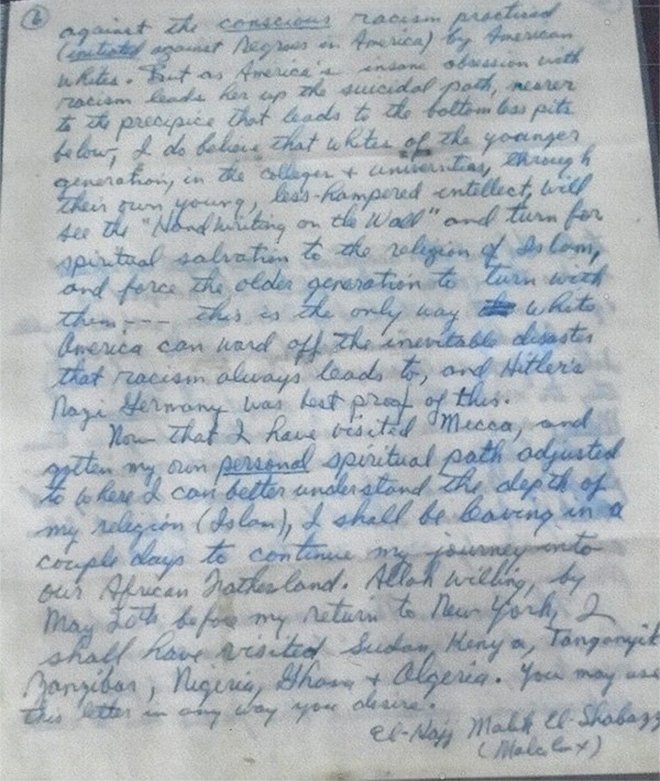 6
against the conscious racism practiced
(initiated against Negroes in America) by American
whites. But as America's insane obsession with
racism leads her up the suicidal path, nearer
to the precipice that leads to the bottomless pits
below, I do believe that whites of the younger
generation, in the colleges + universities, through
their own young, less-hampered intellect, will
see the "Handwriting on the Wall" and turn for
spiritual salvation to the religion of Islam,
and force the older generation to turn with
them---- this is the only way white
America can ward off the inevitable disaster
that racism always leads to, and Hitler's
Nazi Germany was best proof of this.
Now that I have visited Mecca, and
gotten my own personal spiritual path adjusted
to where I can better understand the depth of
my religion (Islam), I shall be leaving in a
couple days to continue my journey into
our African Fatherland. Allah willing, by
May 20th before my return to New York, I
shall have visited Sudan, Kenya, Tanganyik
Zanzibar, Nigeria, Ghana + Algeria. You may use
this letter in any way you desire.
El-Hajj Malik El-Shabazz
(Malcolm X)